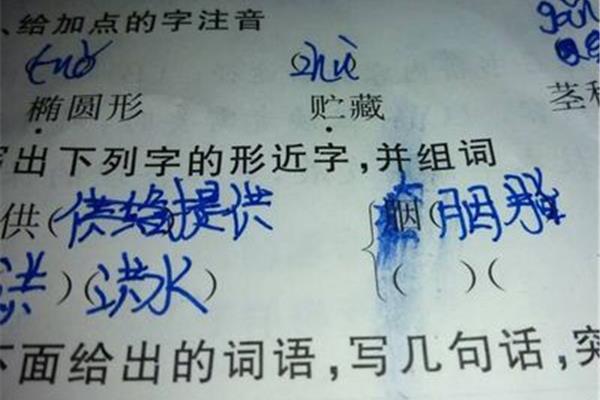 、给加点的字注音
(zhù)
椭圆形 贮藏 茎
出下列字的形近字,并组词
供(提供 胭(胭脂
洪)(洪水) ( )(
下面给出的词语,写几句话,突